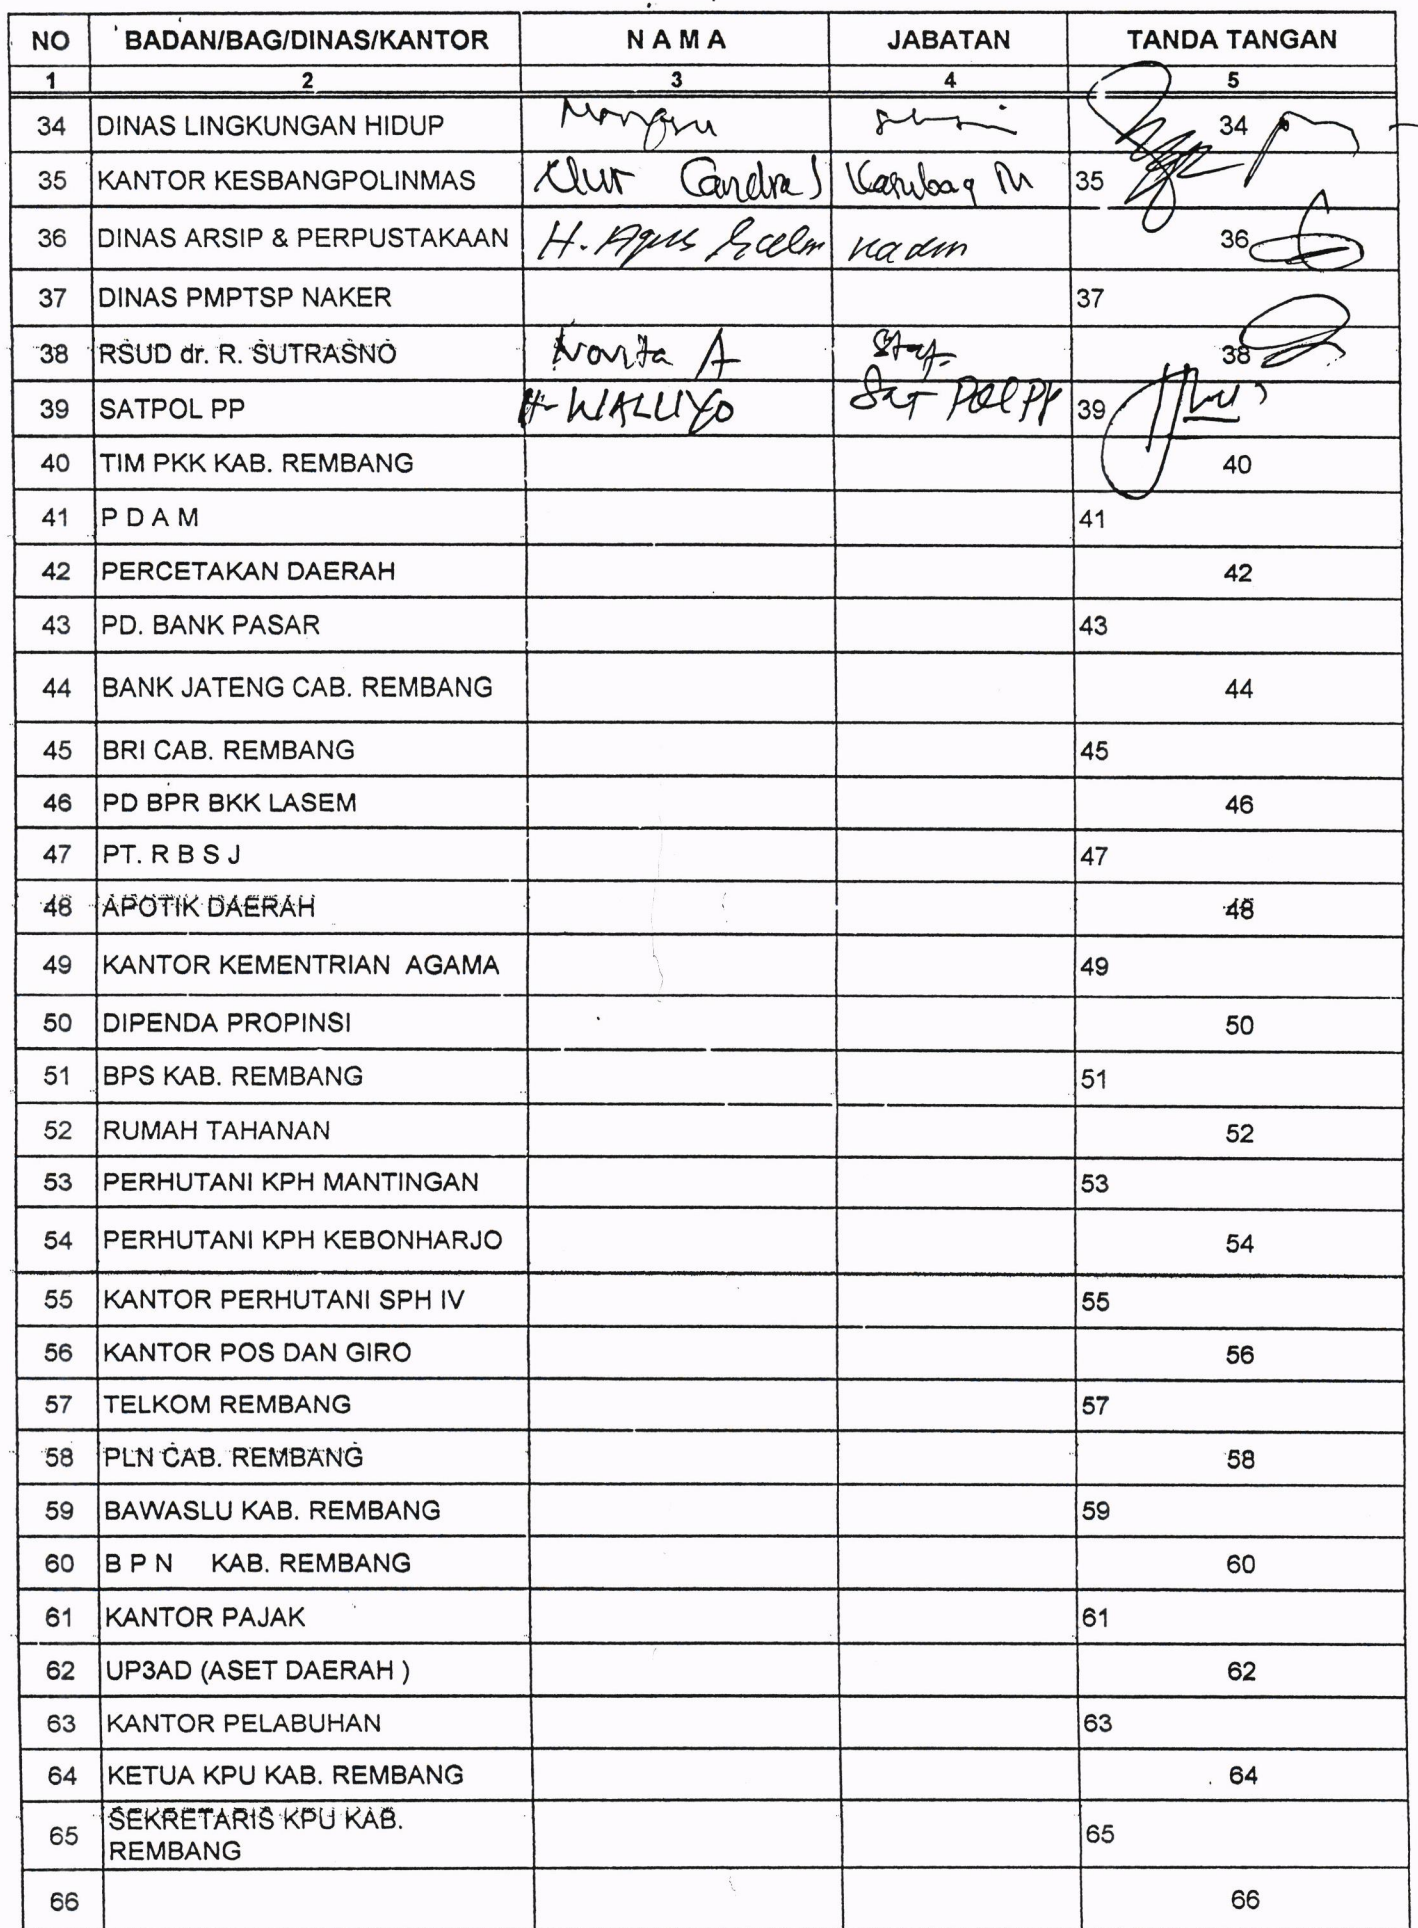 NO BADAN/BAG/DINAS/KANTOR N A M A JABATAN TANDA TANGAN
1 2 3 4 5
34 DINAS LINGKUNGAN HIDUP 34
35 KANTOR KESBANGPOLINMAS Candra 35
36 DINAS ARSIP & PERPUSTAKAAN H. Agus 36
37 DINAS PMPTSP NAKER 37
38 RSUD dr. R. SUTRASNO Novita A Staf 38
39 SATPOL PP H. WALUYO Sat Pol PP 39
40 TIM PKK KAB. REMBANG 40
41 P D A M 41
42 PERCETAKAN DAERAH 42
43 PD. BANK PASAR 43
44 BANK JATENG CAB. REMBANG 44
45 BRI CAB. REMBANG 45
46 PD BPR BKK LASEM 46
47 PT. R B S J 47
48 APOTIK DAERAH 48
49 KANTOR KEMENTRIAN AGAMA 49
50 DIPENDA PROPINSI 50
51 BPS KAB. REMBANG 51
52 RUMAH TAHANAN 52
53 PERHUTANI KPH MANTINGAN 53
54 PERHUTANI KPH KEBONHARJO 54
55 KANTOR PERHUTANI SPH IV 55
56 KANTOR POS DAN GIRO 56
57 TELKOM REMBANG 57
58 PLN CAB. REMBANG 58
59 BAWASLU KAB. REMBANG 59
60 B P N KAB. REMBANG 60
61 KANTOR PAJAK 61
62 UP3AD (ASET DAERAH ) 62
63 KANTOR PELABUHAN 63
64 KETUA KPU KAB. REMBANG 64
65 SEKRETARIS KPU KAB. 65
REMBANG
66 66